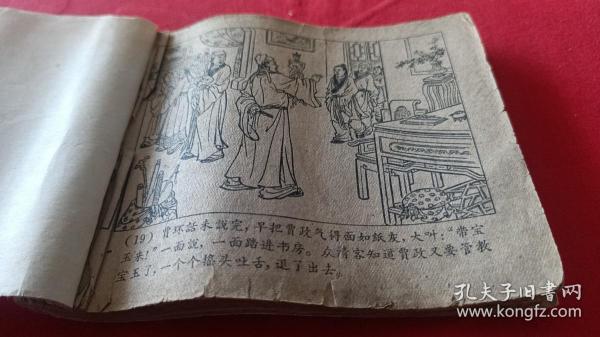 (19) 賈环話未說完，早把賈政气得面如紙灰，大叫："带宝
玉来！"一面說，一面踏进书房。众清客知道賈政又要管教
宝玉了，一个个搖头吐舌，退了出去。
孔夫子旧书网
www.kongfz.com